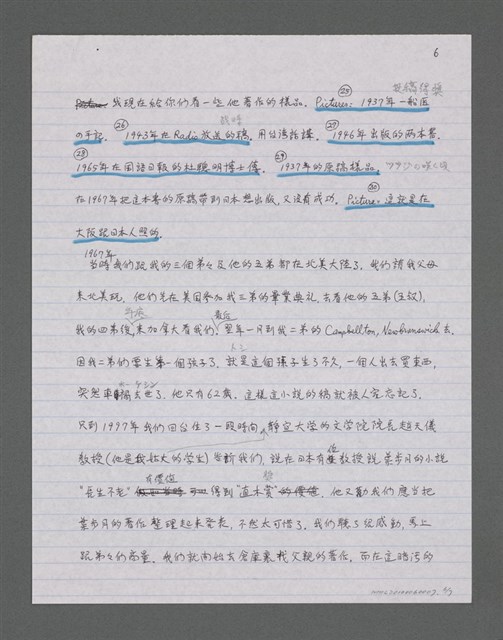 6
我現在給你們看一些他著作的樣品. Pictures: 1937年一船医
投稿得獎
の手記. 1943年在Radio放送的稿. 用台湾話講. 1946年出版的两本書.
戰時
1965年在國語日報的杜聰明博士傳. 1937年的原稿樣品.
在1967年把這本書的原稿帶到日本想出版, 又沒有成功. Picture: 這就是在
大阪跟日本人照的.
1967年
當時我們跟我的三個弟々及他的五弟都在北美大陸了, 我們請我父母
來北美玩. 他們先在美國參加我三弟的畢業典禮, 去看他的五弟(五叔),
我的四弟後, 來加拿大看我們, 翌年一月到我二弟的 Campbellton, New Brunswick 去.
因我二弟們要生第一個孩子了. 就是這個孫子生了不久, 一個人出去買東西,
突然車禍去世了. 他只有62歲. 這樣這小說的稿就被人完忘記了.
只到1997年我們回台住了一段時間, 靜宜大學的文学院院長趙天儀
教授(他是我姑丈的学生)告訴我們, 說在日本有位教授說葉步月的小說
"長生不老" 有價值得到"直木賞". 他又勸我們應当把
葉步月的著作整理起來發表, 不然太可惜了. 我們聽了很感動, 馬上
跟弟々們商量. 我們就開始去倉庫裏找父親的著作. 而在這暗污的